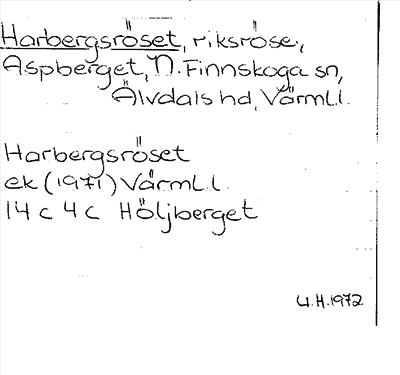 Harbergsröset, riksröse,
Aspberget, N. Finnskoga sn,
Älvdals hd, Värml.l.
Harbergsröset
ek (1971) Värml.l.
14 c 4 c Höljberget
U.H. 1972